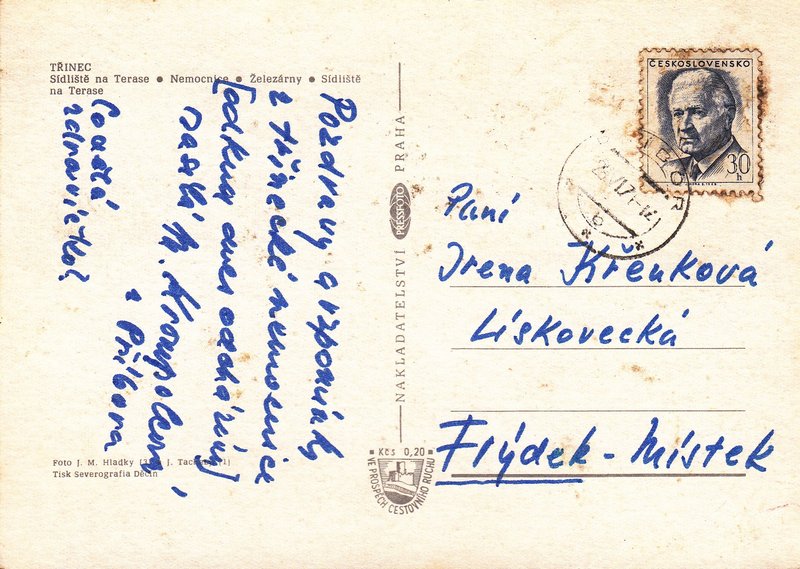 TŘINEC
Sídliště na Terase • Nemocnice • Železárny • Sídliště
na Terase
Pozdravy a vzpomínky
z třinecké nemocnice
[odkud dnes odcházím]
zasílá
z Příbora
Co dělá
Foto J. M. Hladky J.
Tisk Severografia Děčín
NAKLADATELSTVÍ PRESSFOTO PRAHA
Kčs 0,20
VE PROSPĚCH CESTOVNÍHO RUCHU
ČESKOSLOVENSKO
30 h
Paní
Irena Křenková
Lískovecká
Frýdek - Místek